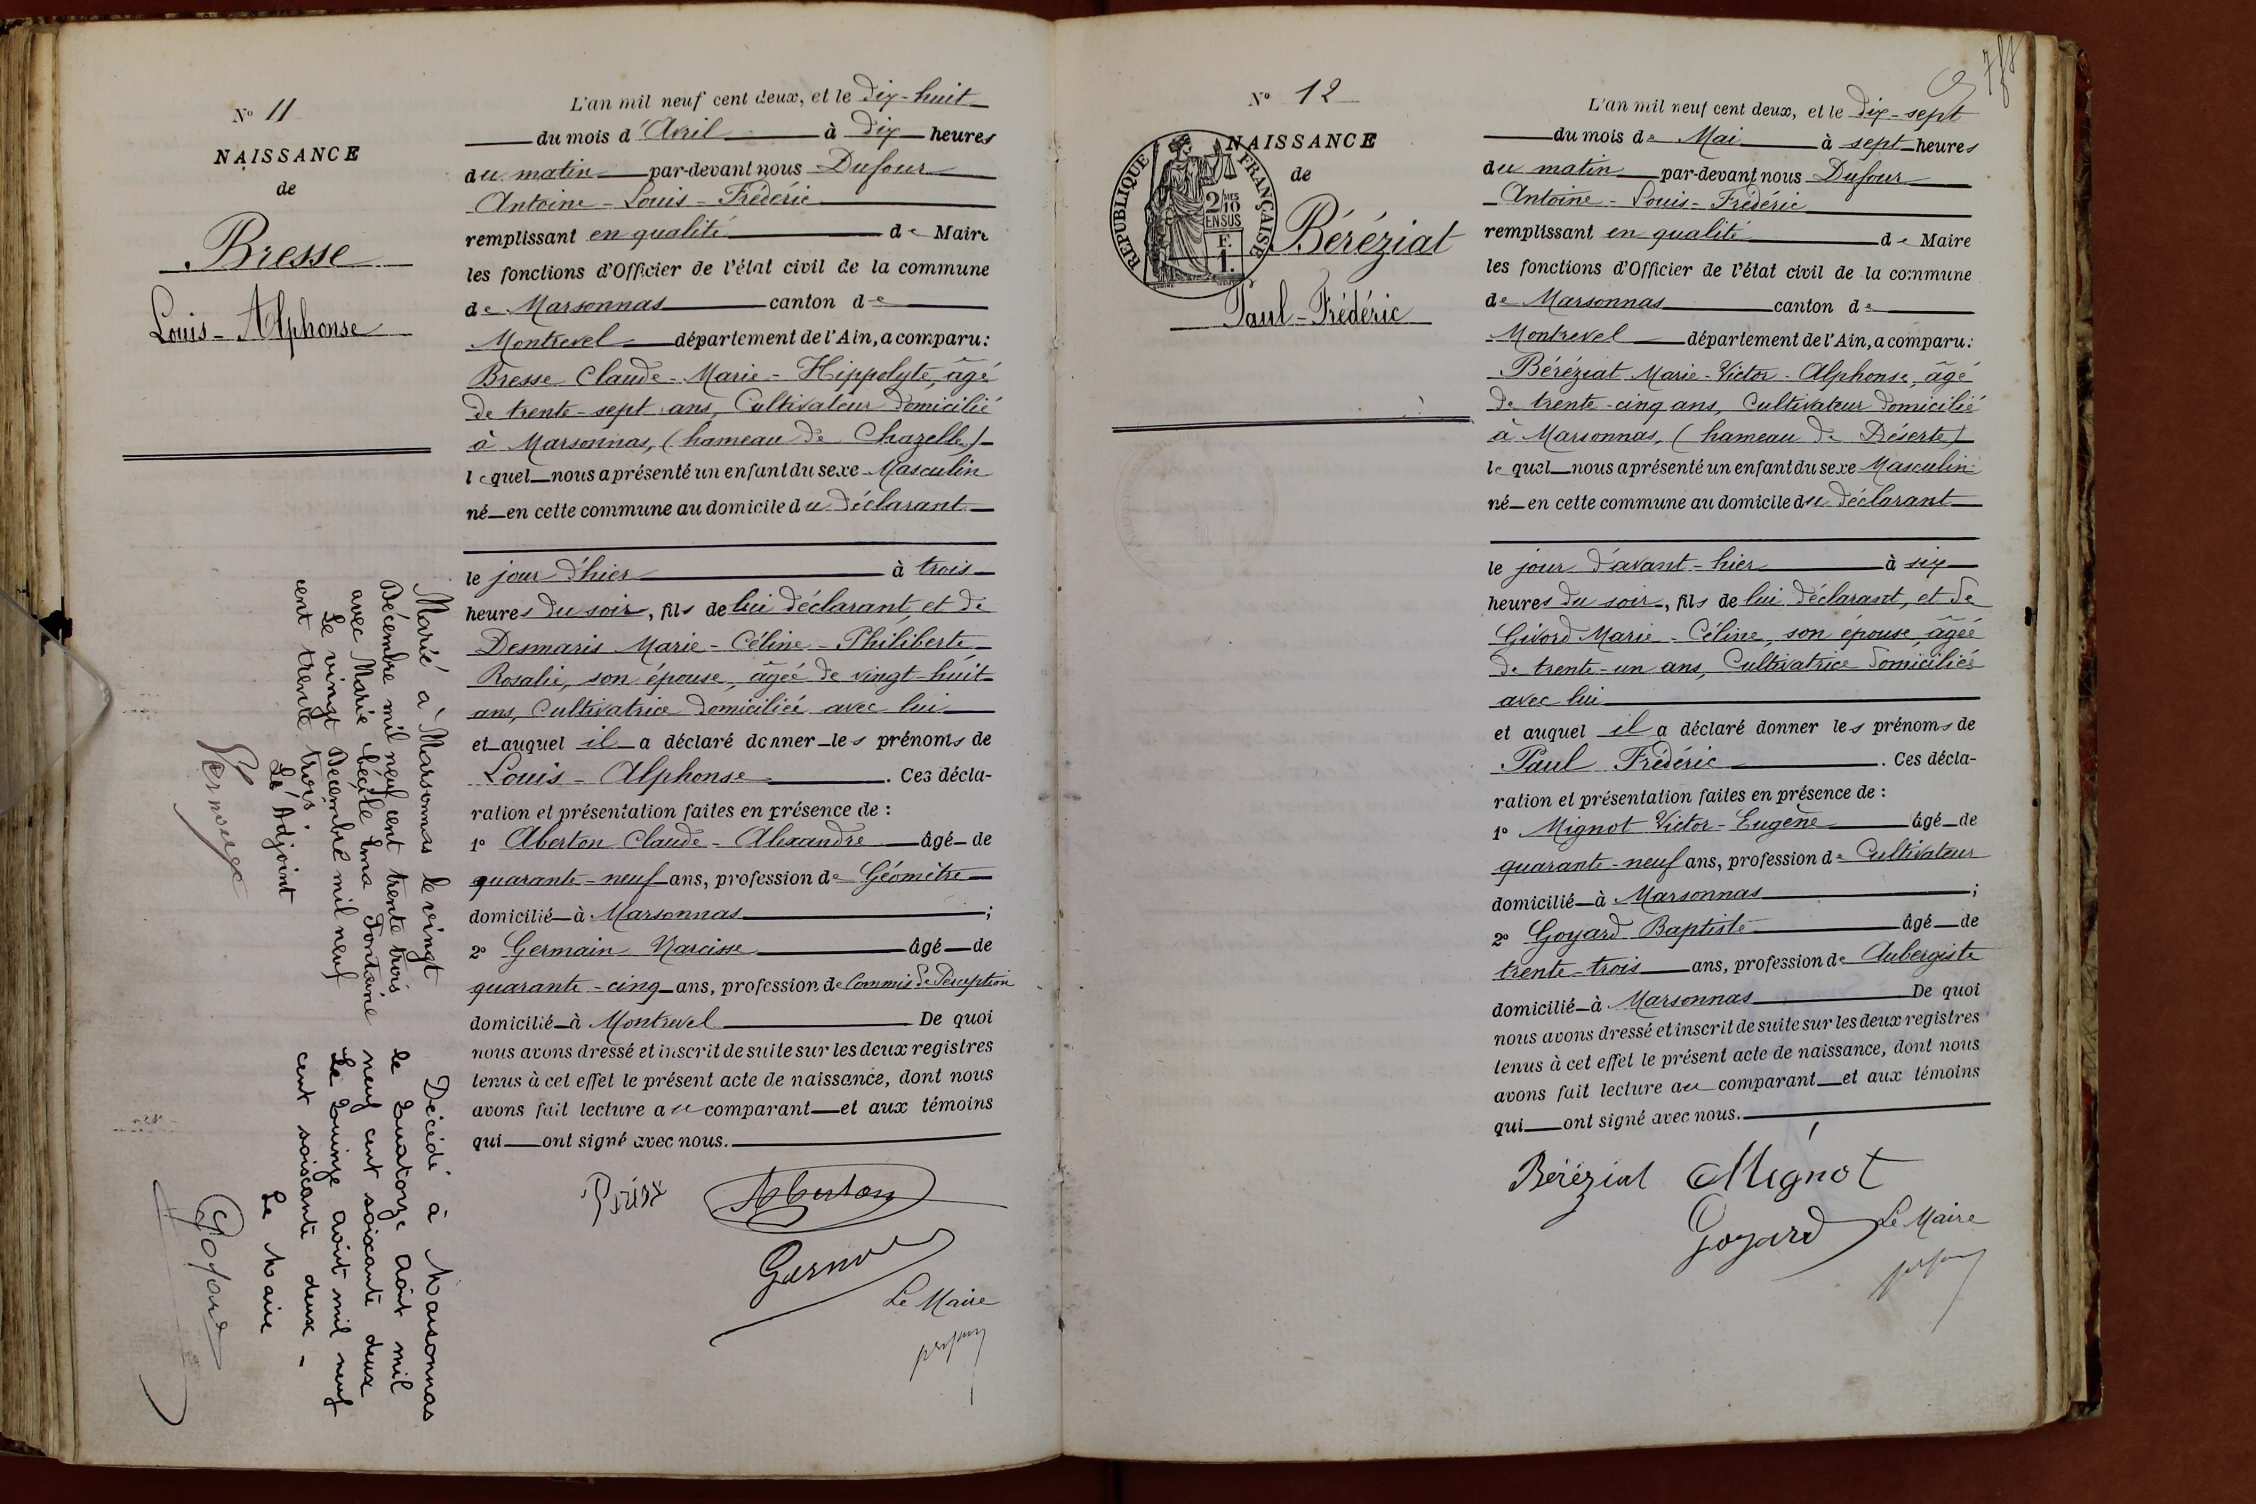 N° 11
NAISSANCE
de
Bresse
Louis - Alphonse
L'an mil neuf cent deux, et le dix-huit
du mois d'Avril à dix heures
du matin par-devant nous Dufour
Antoine - Louis - Frédéric
remplissant en qualité de Maire
les fonctions d'Officier de l'état civil de la commune
de Marsonnas canton de
Montrevel département de l'Ain, a comparu :
Bresse Claude - Marie - Hippolyte, âgé
de trente-sept ans, Cultivateur domicilié
à Marsonnas, (hameau de Chazelle)
lequel nous a présenté un enfant du sexe Masculin
né en cette commune au domicile du déclarant
le jour d'hier à trois
heures du soir, fils de lui déclarant, et de
Desmaris Marie - Céline - Philiberte
Rosalie, son épouse, âgée de vingt-huit
ans, Cultivatrice domiciliée avec lui
et auquel il a déclaré donner les prénoms de
Louis - Alphonse. Ces décla-
ration et présentation faites en présence de :
1° Aberton Claude - Alexandre âgé de
quarante-neuf ans, profession de Géomètre
domicilié à Marsonnas ;
2° Germain Narcisse âgé de
quarante-cinq ans, profession de Commis de Perception
domicilié à Montrevel De quoi
nous avons dressé et inscrit de suite sur les deux registres
tenus à cet effet le présent acte de naissance, dont nous
avons fait lecture au comparant et aux témoins
qui ont signé avec nous.
Aberton
Le Maire
Marié à Marsonnas le vingt
Décembre mil neuf cent trente trois
avec Marie Cécile Irma Fontaine
Le vingt Décembre mil neuf
cent trente trois.
Le Adjoint
Décédé à Marsonnas
le Quatorze août mil
neuf cent soixante deux
Le Quinze août mil neuf
cent soixante deux -
Le Maire
Goyard
N° 12
NAISSANCE
de
RÉPUBLIQUE FRANÇAISE
2/10MES
EN SUS
F.
1.
Béréziat
Paul - Frédéric
L'an mil neuf cent deux, et le dix-sept
du mois de Mai à sept heures
du matin par-devant nous Dufour
Antoine - Louis - Frédéric
remplissant en qualité de Maire
les fonctions d'Officier de l'état civil de la commune
de Marsonnas canton de
Montrevel département de l'Ain, a comparu :
Béréziat Marie - Victor - Alphonse, âgé
de trente-cinq ans, Cultivateur domicilié
à Marsonnas, (hameau de Déserte)
lequel nous a présenté un enfant du sexe Masculin
né en cette commune au domicile du déclarant
le jour d'avant-hier à six
heures du soir, fils de lui déclarant, et de
Givord Marie - Céline, son épouse, âgée
de trente-un ans, Cultivatrice domiciliée
avec lui
et auquel il a déclaré donner les prénoms de
Paul Frédéric. Ces décla-
ration et présentation faites en présence de :
1° Mignot Victor - Eugène âgé de
quarante-neuf ans, profession de Cultivateur
domicilié à Marsonnas ;
2° Goyard Baptiste âgé de
trente-trois ans, profession de Aubergiste
domicilié à Marsonnas De quoi
nous avons dressé et inscrit de suite sur les deux registres
tenus à cet effet le présent acte de naissance, dont nous
avons fait lecture au comparant et aux témoins
qui ont signé avec nous.
Béréziat Mignot
Goyard Le Maire